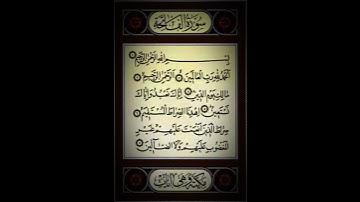 سورة الفاتحة
بسم الله الرحمن الرحيم
الحمد لله رب العالمين الرحمن الرحيم
مالك يوم الدين إياك نعبد وإياك
نستعين اهدنا الصراط المستقيم
صراط الذين أنعمت عليهم غير
المغضوب عليهم ولا الضالين